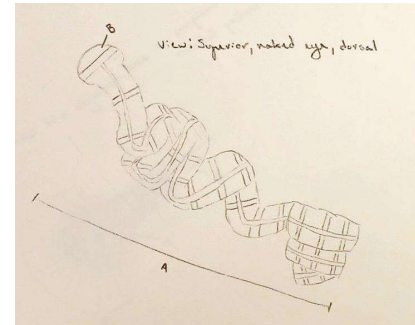 B
View: Superior, naked eye, dorsal
A